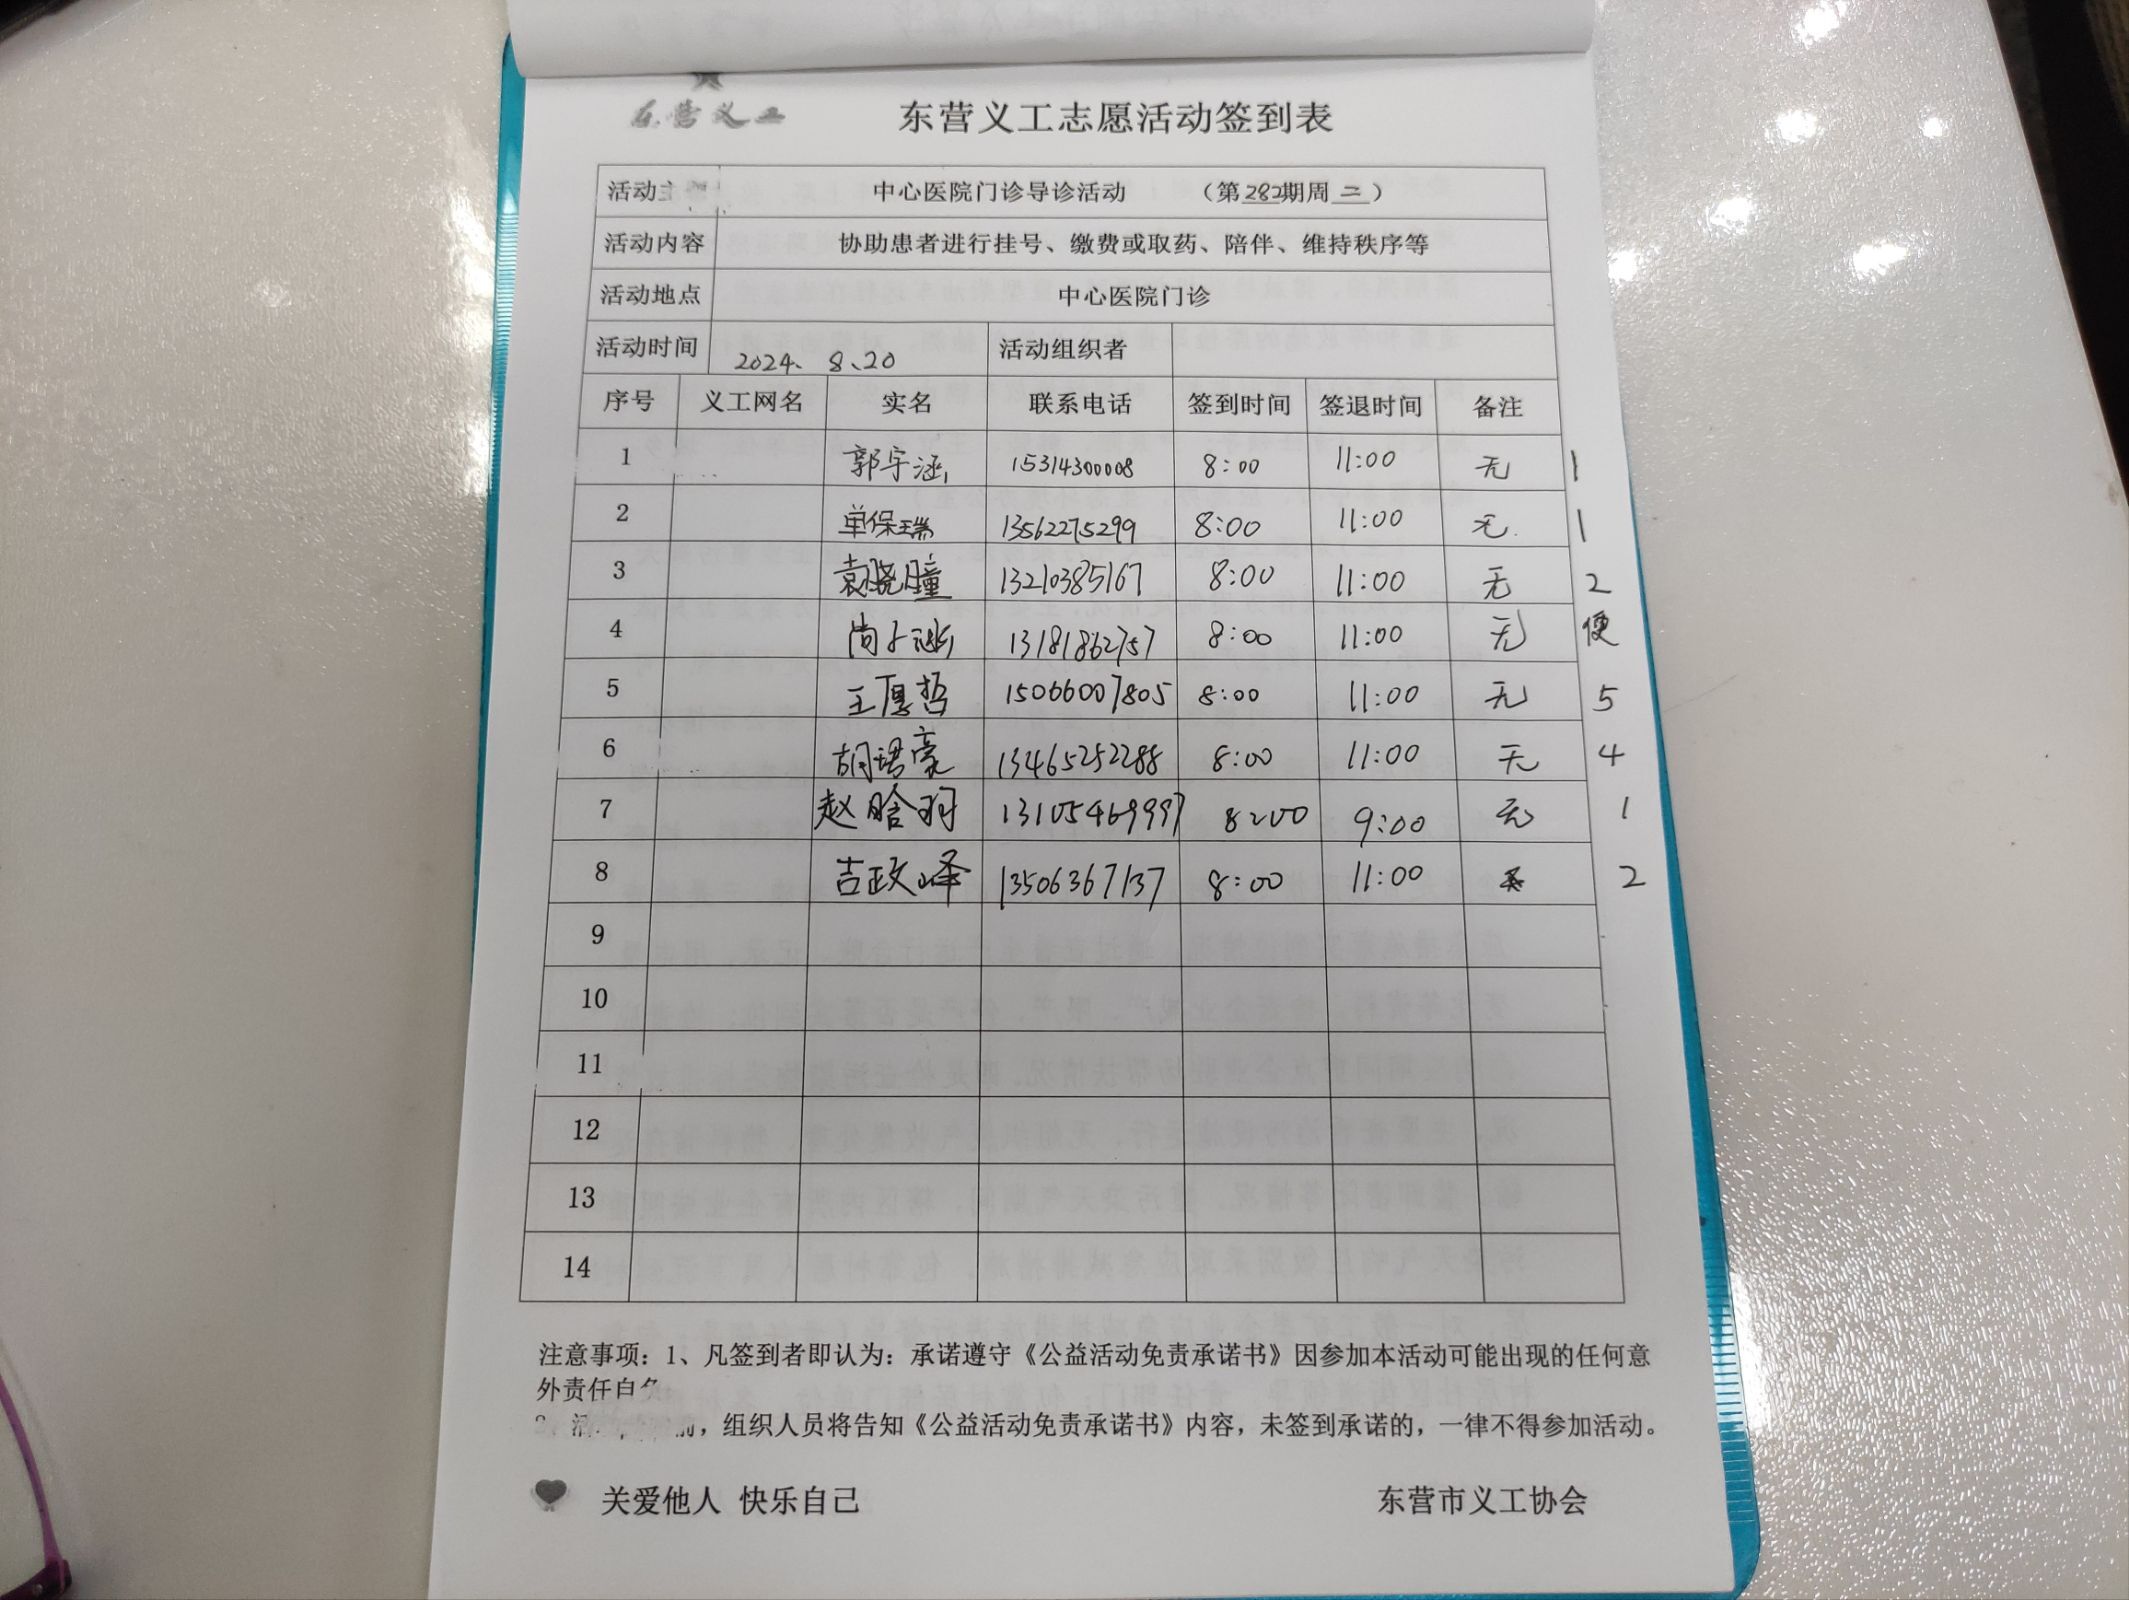 东营义工
东营义工志愿活动签到表
活动主 中心医院门诊导诊活动 （第282期周二）
活动内容 协助患者进行挂号、缴费或取药、陪伴、维持秩序等
活动地点 中心医院门诊
活动时间 2024、8、20 活动组织者
序号 义工网名 实名 联系电话 签到时间 签退时间 备注
1 郭宇涵 15314300008 8:00 11:00 无 1
2 单保瑞 13562275299 8:00 11:00 无. 1
3 袁晓瞳 13210385167 8:00 11:00 无 2
4 尚子涵 13181862757 8:00 11:00 无 便
5 王厚哲 15066007805 8:00 11:00 无 5
6 胡珺豪 13465252288 8:00 11:00 无 4
7 赵晗羽 13105469997 8:00 9:00 无 1
8 吉政峄 13506367137 8:00 11:00 2
9
10
11
12
13
14
注意事项：1、凡签到者即认为：承诺遵守《公益活动免责承诺书》因参加本活动可能出现的任何意
外责任自负
前，组织人员将告知《公益活动免责承诺书》内容，未签到承诺的，一律不得参加活动。
关爱他人 快乐自己 东营市义工协会